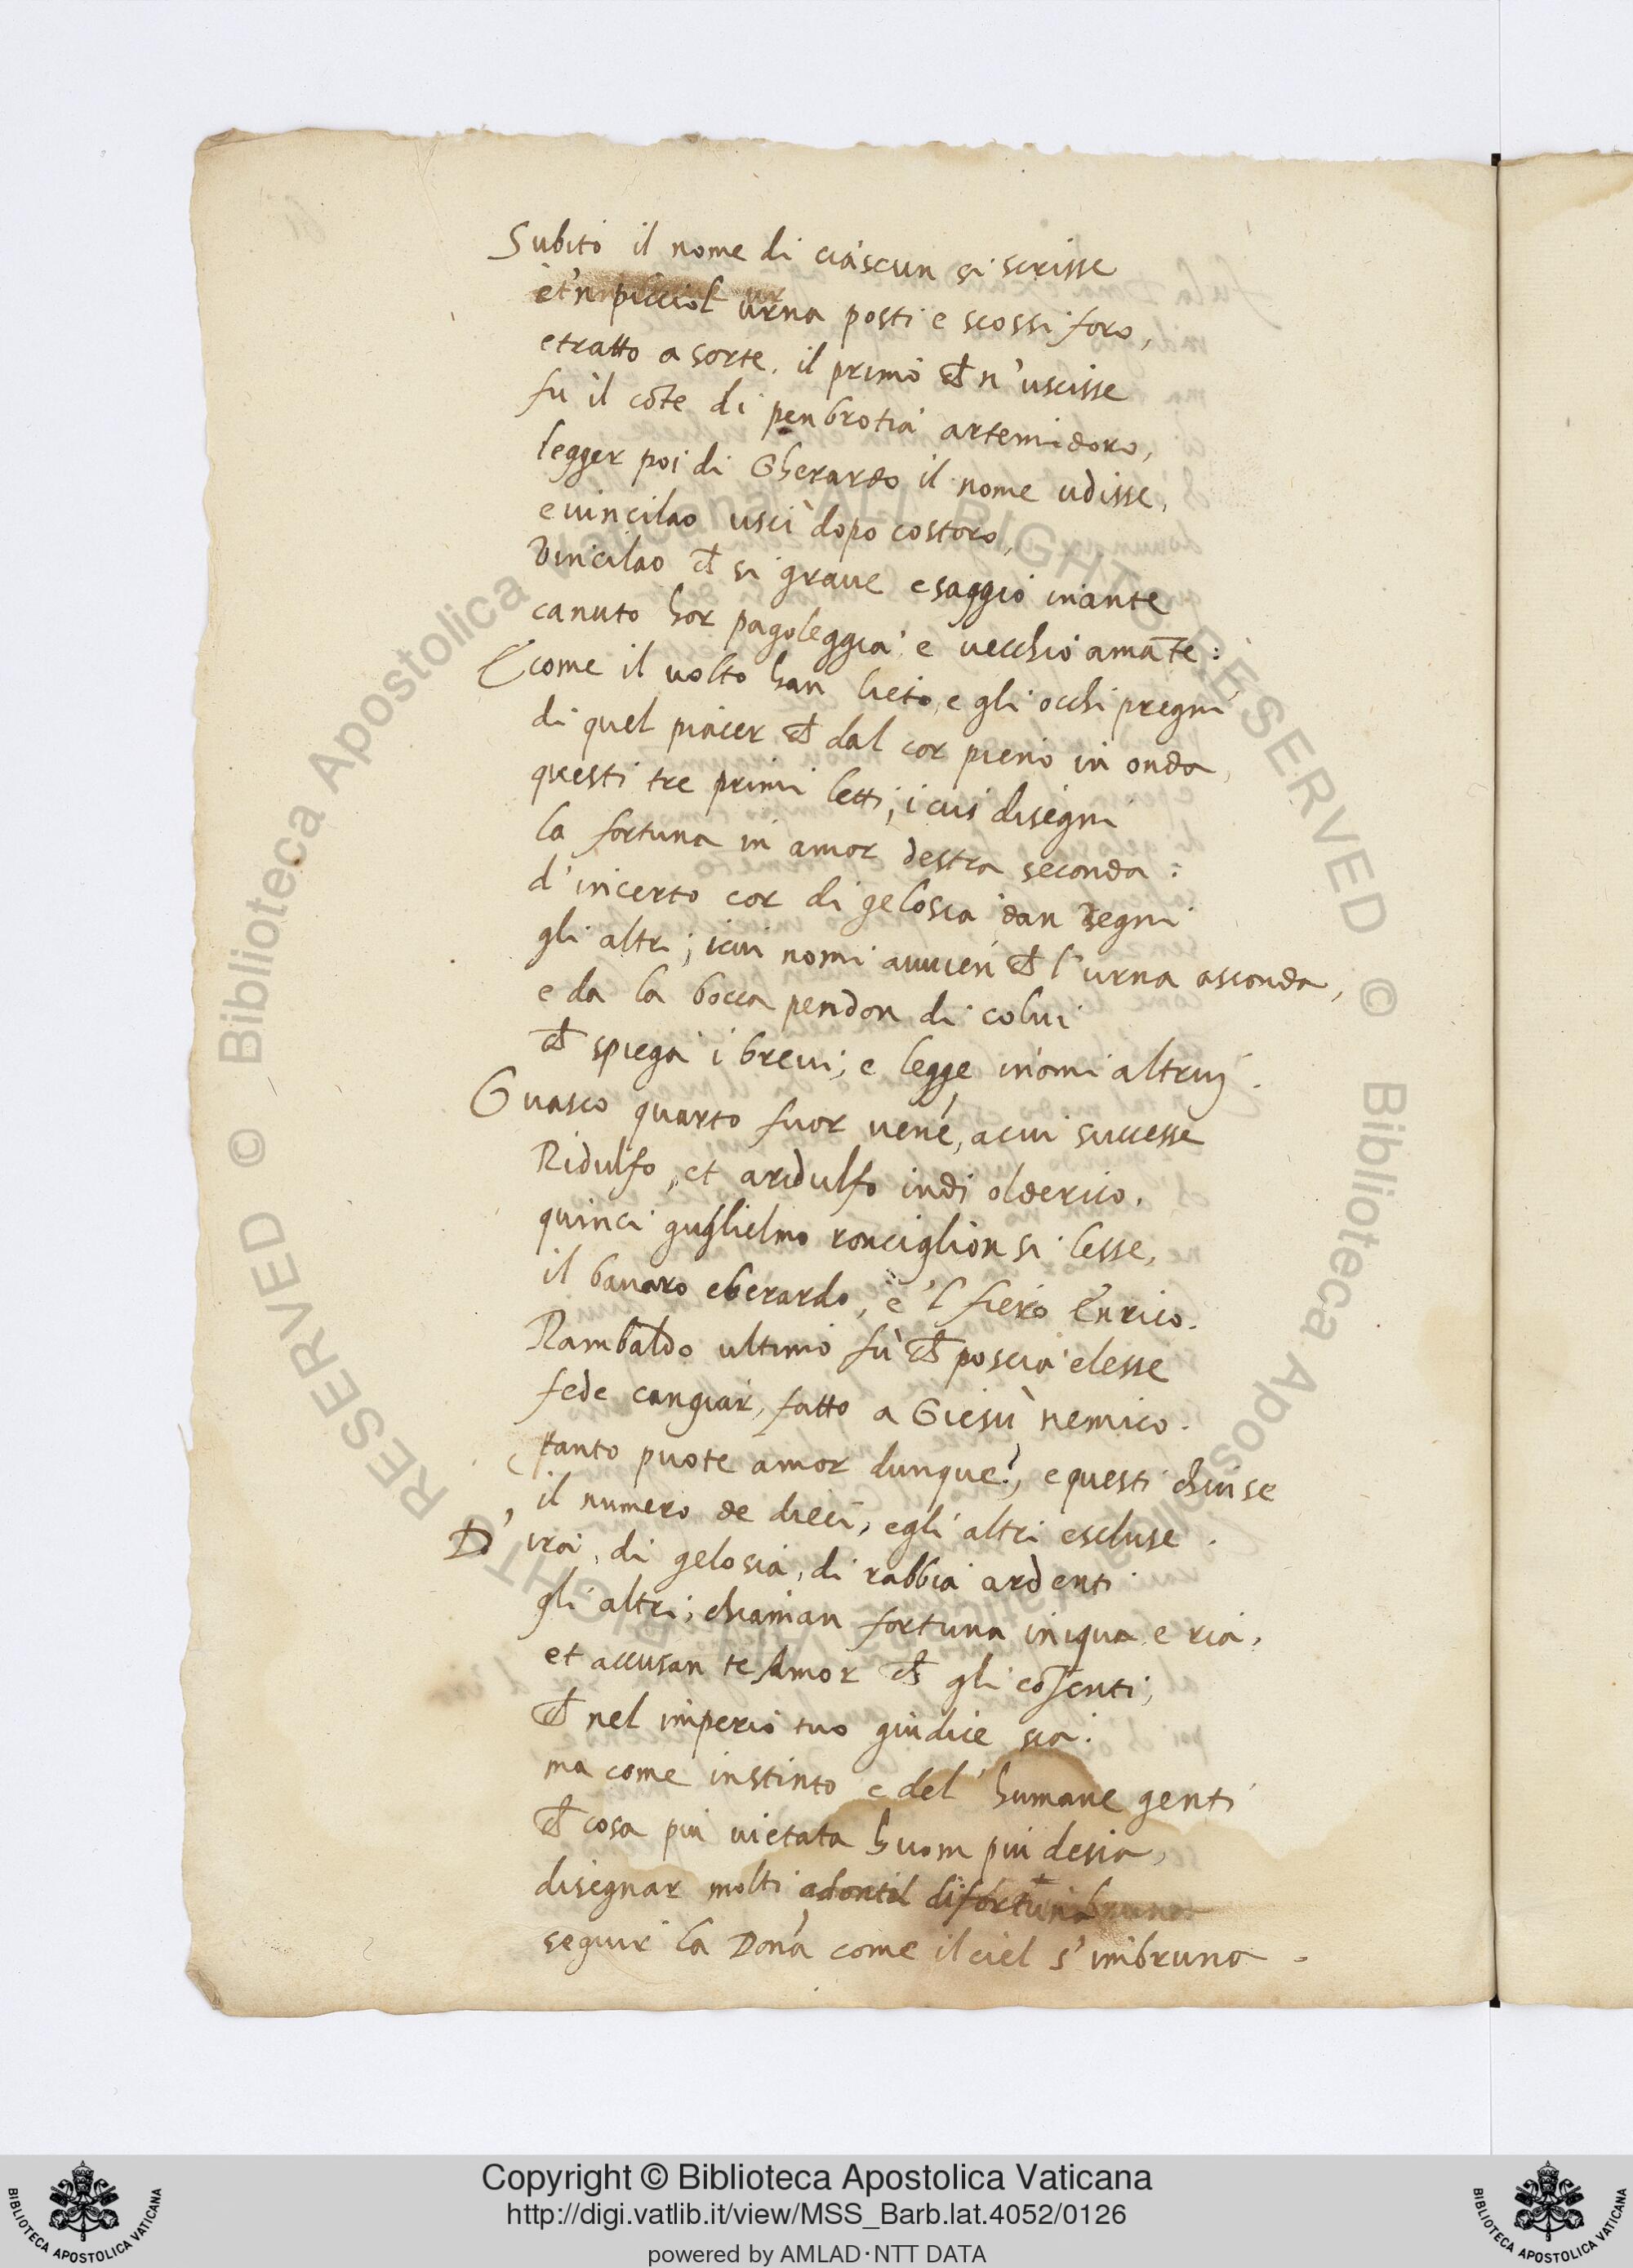 Subito il nome di ciascun si scrisse
et 'n picciol urna posti e scossi foro,
e tratto a sorte. il primo ch n'uscisse
fu il cõte di penbrotia artemidoro,
legger poi di Gherardo il nome udisse,
e uincilao uscì dopo costoro,
Vincilao ch si graue e saggio inante
canuto hor pagoleggia e uecchio amãte:
E come il uolto han lieto, e gli occhi pregni
di quel piacer ch dal cor pieno in onda,
questi tre primi letti, i cui disegni
la fortuna in amor destra seconda:
d'incerto cor di gelosia dan segni
gli altri; i cui nomi auuien ch l'urna asconda,
e da la bocca pendon di colui
ch spiega i breui; e legge i nomi altrui.
Guasco quarto fuor uene, a cui successe
Ridulfo, et ardulfo indi olderico,
quinci guglielmo ronciglion si lesse,
il bauaro eberardo, e 'l fiero Enrico.
Rambaldo ultimo fù ch poscia elesse
fede cangiar, fatto a Giesù nemico.
( tanto puote amor dunque?, e questi chiuse
il numero de dieci, e gli altri escluse.
D' ira, di gelosia, di rabbia ardenti
gli altri; chiaman fortuna iniqua e ria,
et accusan te Amor ch gli cõsenti;
ch nel imperio tuo giudice sia.
ma come instinto e del' humane genti
ch cosa piu uietata huom piu desia,
disegnar molti ad onta di fortuna
seguir la Dona come il ciel s'imbruna.
Copyright © Biblioteca Apostolica Vaticana
http://digi.vatlib.it/view/MSS_Barb.lat.4052/0126
powered by AMLAD·NTT DATA
BIBLIOTECA APOSTOLICA VATICANA
BIBLIOTECA APOSTOLICA VATICANA